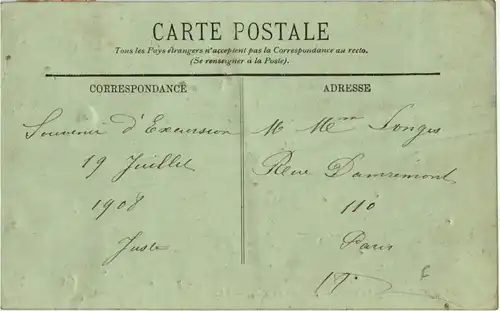 CARTE POSTALE
Tous les Pays étrangers n'acceptent pas la Correspondance au recto.
(Se renseigner à la Poste).
CORRESPONDANCE
Souvenir d'Excursion
19 Juillet
1908
Juste
ADRESSE
M Mme Songes
Rue Damremont
110
Paris